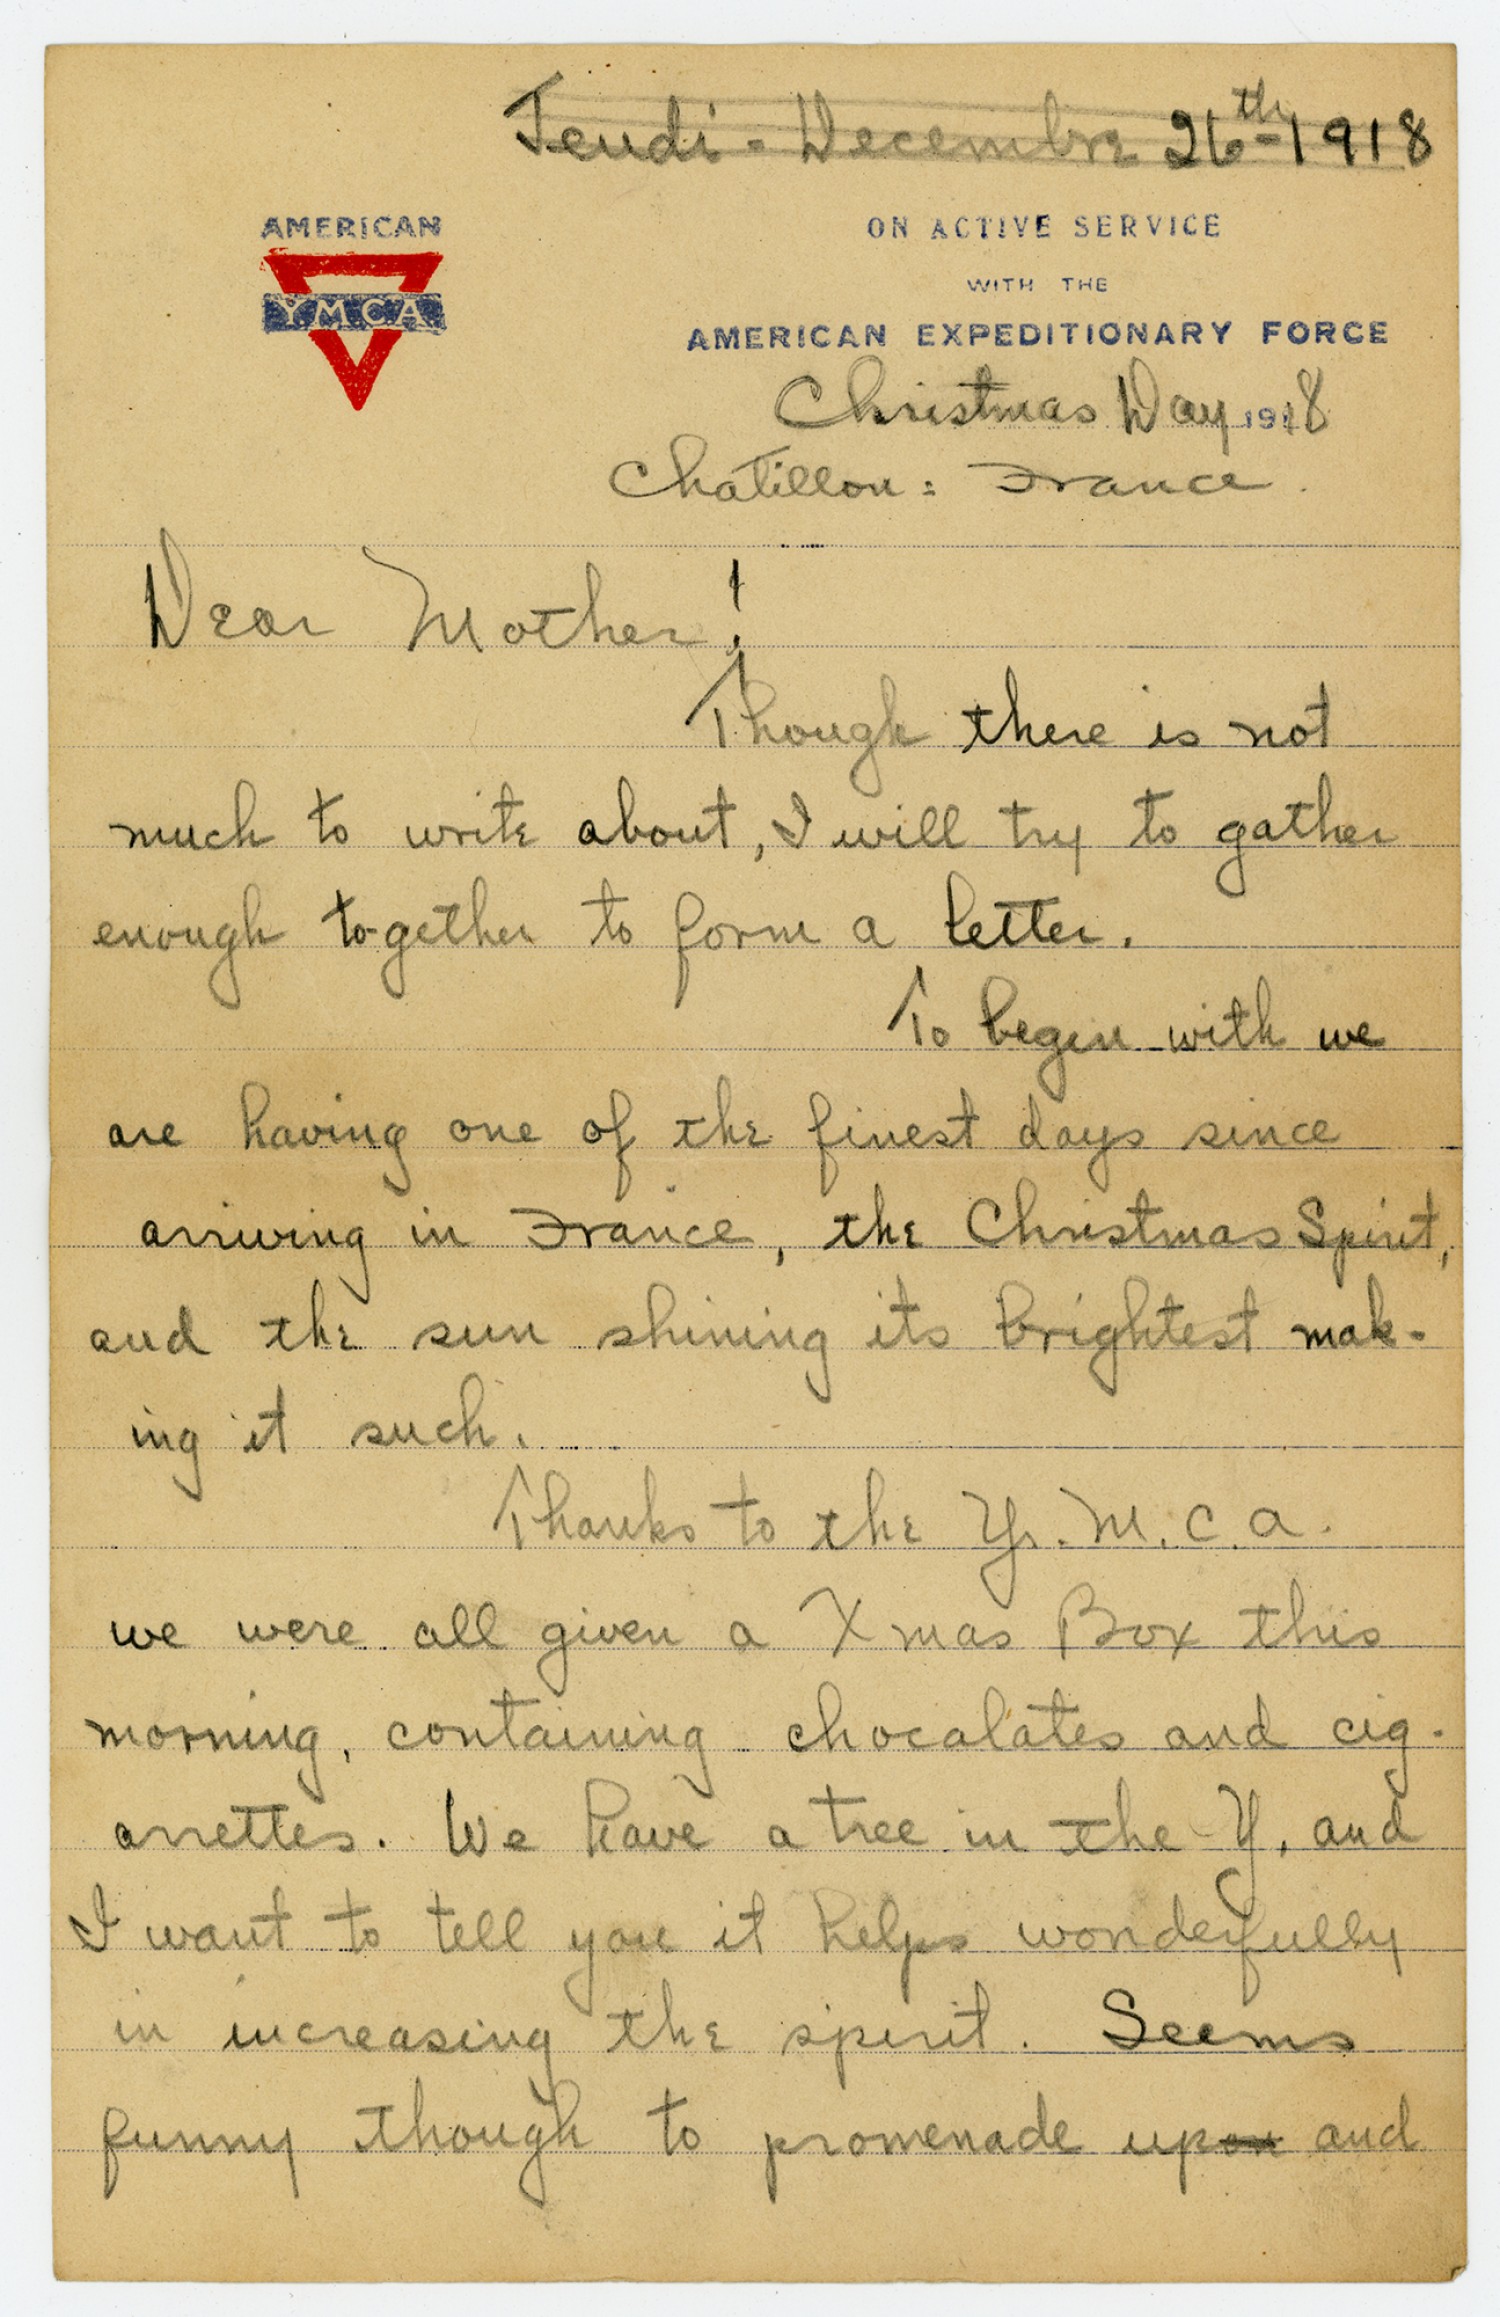 Jeudi - Decembre 26th - 1918
AMERICAN
YMCA
ON ACTIVE SERVICE
WITH THE
AMERICAN EXPEDITIONARY FORCE
Christmas Day 1918
Chatillon: France.
Dear Mother!
Though there is not
much to write about, I will try to gather
enough to-gether to form a letter.
To begin with we
are having one of the finest days since
arriving in France, the Christmas Spirit,
and the sun shining its brightest mak-
ing it such.
Thanks to the Y.M.C.A.
we were all given a Xmas Box this
morning, containing chocalates and cig-
arrettes. We have a tree in the Y, and
I want to tell you it helps wonderfully
in increasing the spirit. Seems
funny though to promenade upon and